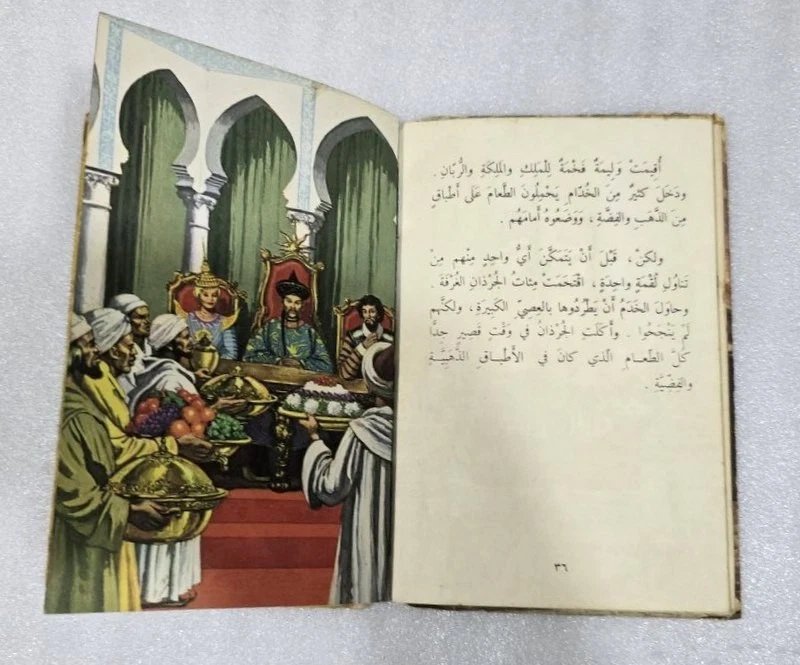 أُقِيمَتْ وَلِيمَةٌ فَخْمَةٌ لِلْمَلِكِ والمَلِكَةِ والرُّبّانِ .
ودَخَلَ كَثيرٌ مِنَ الخُدّامِ يَحْمِلُونَ الطَّعامَ عَلَى أَطْباقٍ
مِنَ الذَّهَبِ والفِضَّةِ ، وَوَضَعُوهُ أَمامَهُم .
ولكِنْ ، قَبْلَ أَنْ يَتَمَكَّنَ أَيُّ واحِدٍ مِنْهم مِن
تَناوُلِ لُقْمَةٍ واحِدَةٍ ، اقْتَحَمَتْ مِئاتُ الجُرْذانِ الغُرْفَةَ .
وحاوَلَ الخَدَمُ أَنْ يَطْرُدُوها بالعِصِيِّ الكَبِيرَةِ ، ولكنَّهم
لَمْ يَنْجَحُوا . وأَكَلَتِ الجُرْذانُ في وَقْتٍ قَصِيرٍ جِدًّا
كُلَّ الطَّعامِ الَّذي كانَ في الأَطْباقِ الذَّهَبِيَّةِ
والفِضِّيَّةِ .
٣٦